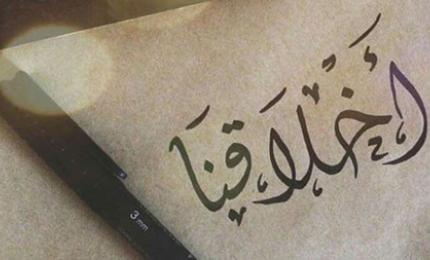 أخلاقنا
3 mm